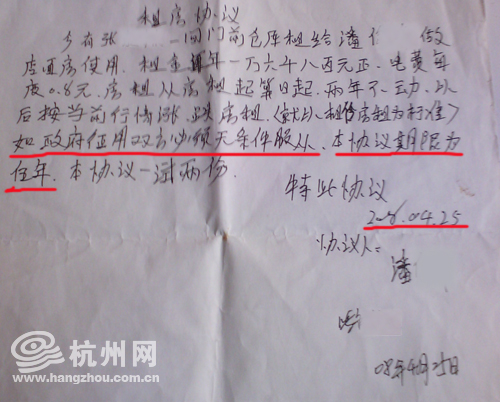 租房协议
乡有张 一间门前仓库租给潘 做
店面房使用.租金每年一万六千八百元正.电费每
度0.8元.房租从房租起算日起.两年不动.以
后按当前行情涨跌房租(就以租售房租为标准)
如政府征用双方必须无条件服从.本协议期限为
伍年.本协议一试两份.
特此协议
2008.04.25
协议人:
潘
08年4月25日
杭州网
www.hangzhou.com.cn